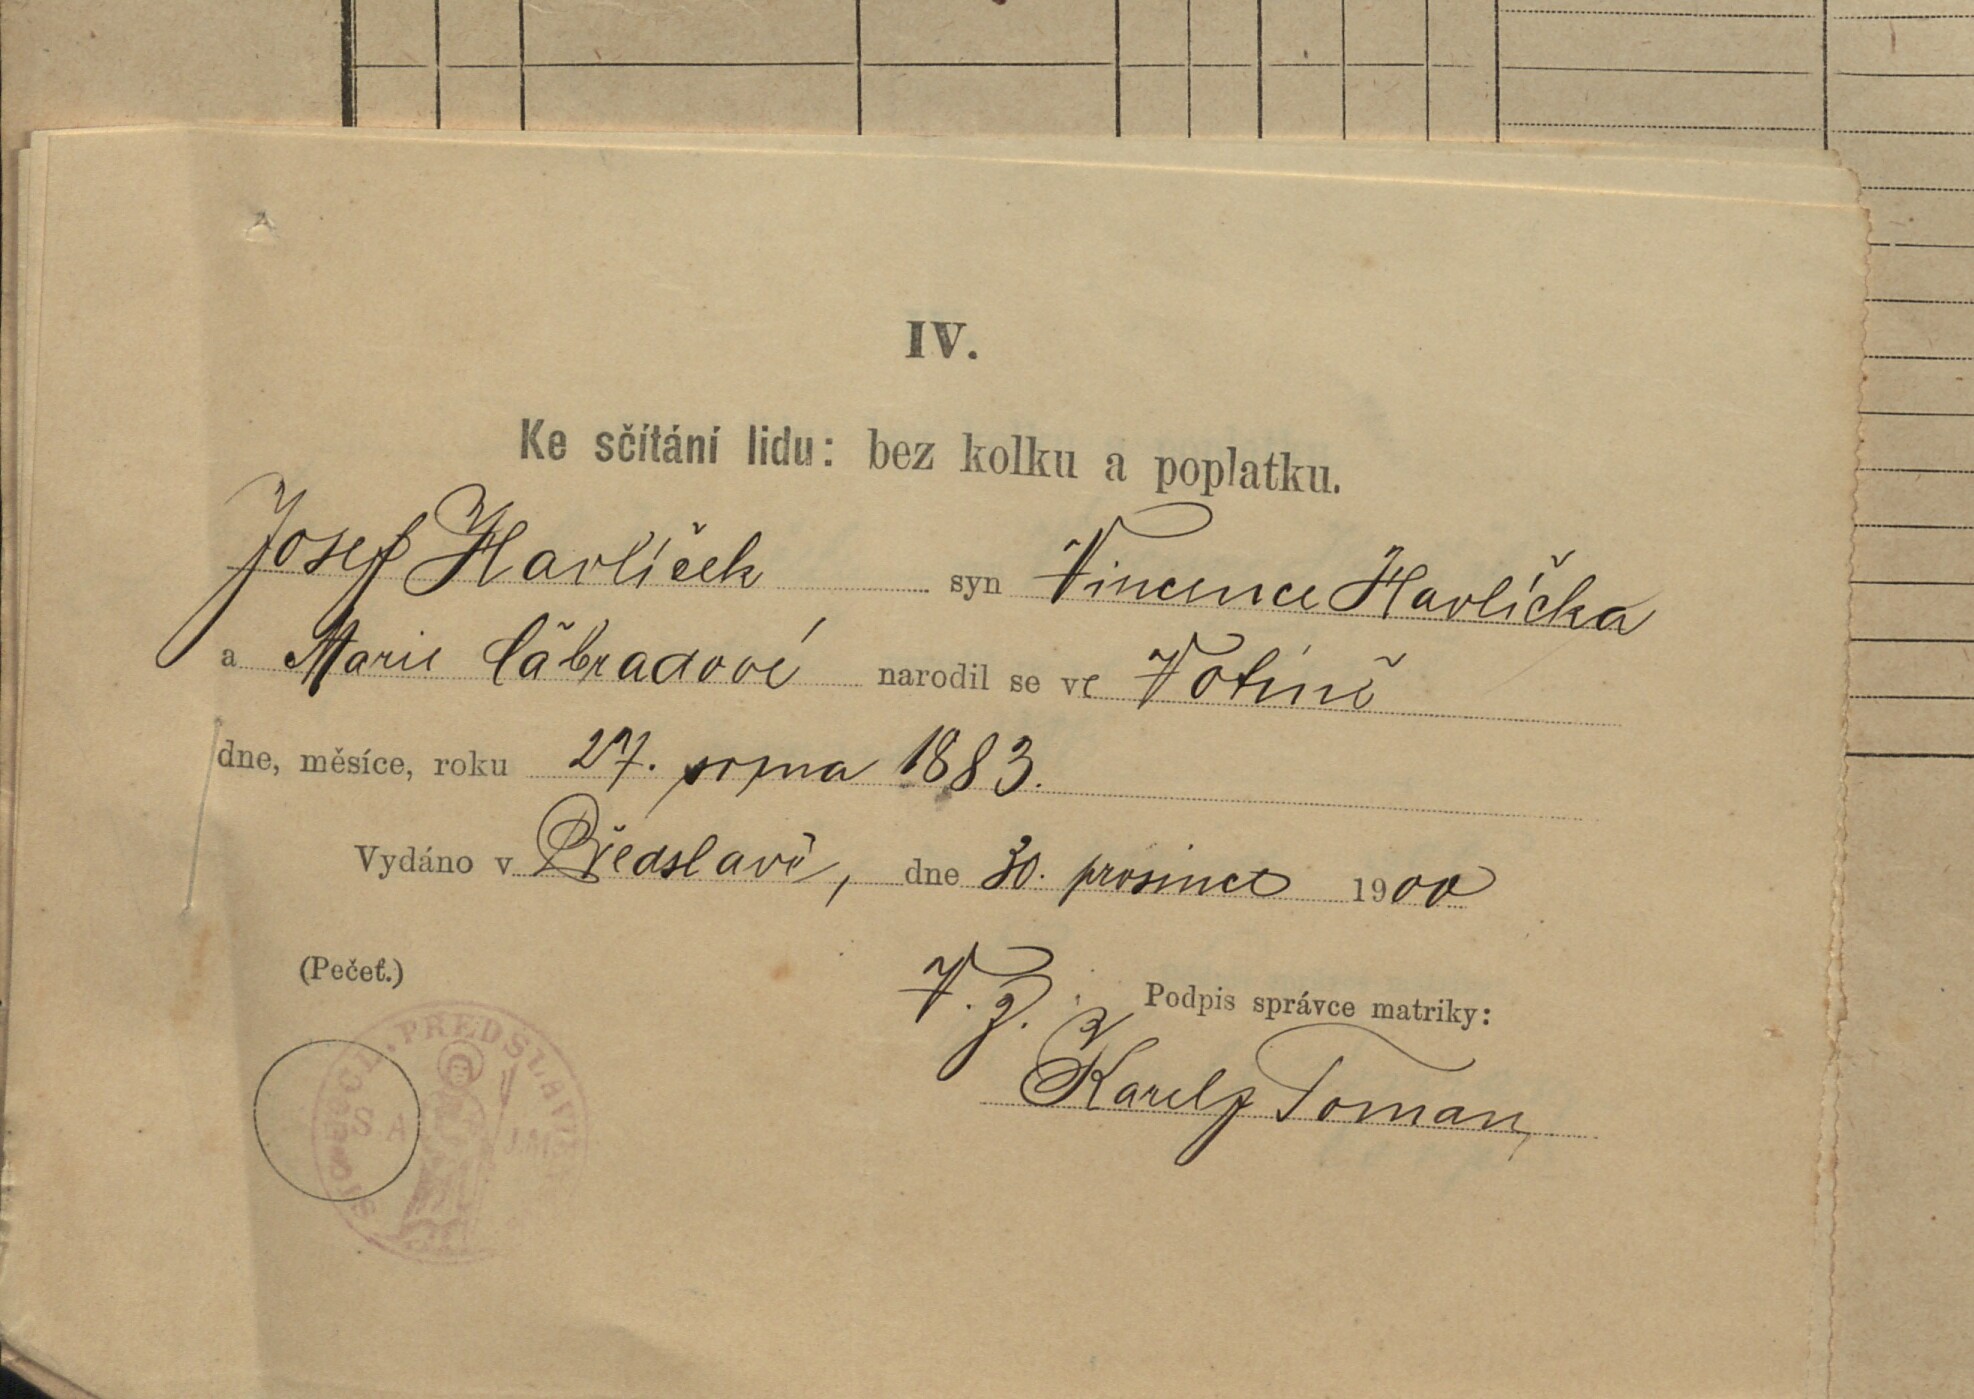 IV.
Ke sčítání lidu: bez kolku a poplatku.
Josef Havlíček syn Vincence Havlíčka
a Marie Čábradové narodil se ve Votíně
dne, měsíce, roku 27. srpna 1883.
Vydáno v Předslavě, dne 30. prosince 1900
(Pečeť.)
V. z. Podpis správce matriky:
Karel Toman
PŘEDSLAV